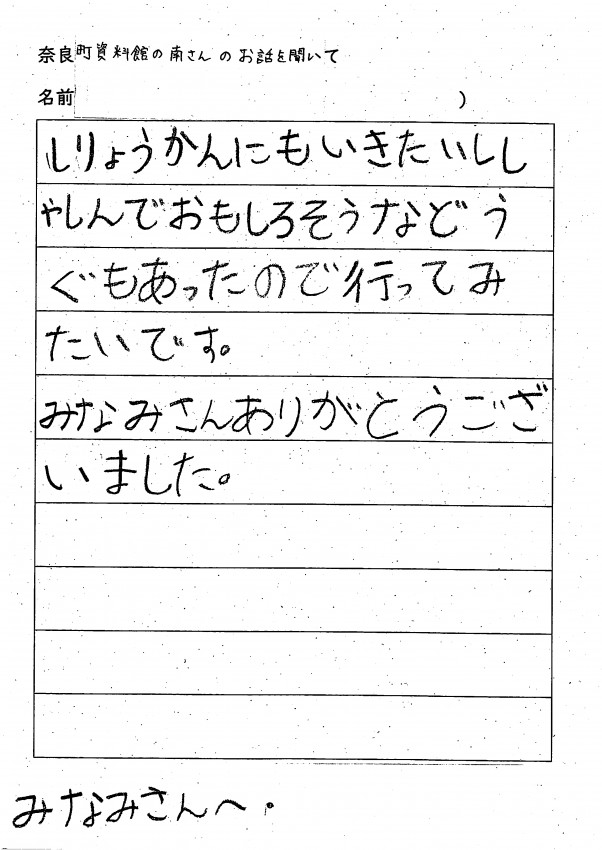 奈良町資料館の南さんのお話を聞いて
名前 )
しりょうかんにもいきたいしし
ゃしんでおもしろそうなどう
ぐもあったので行ってみ
たいです。
みなみさんありがとうござ
いました。
みなみさんへ。